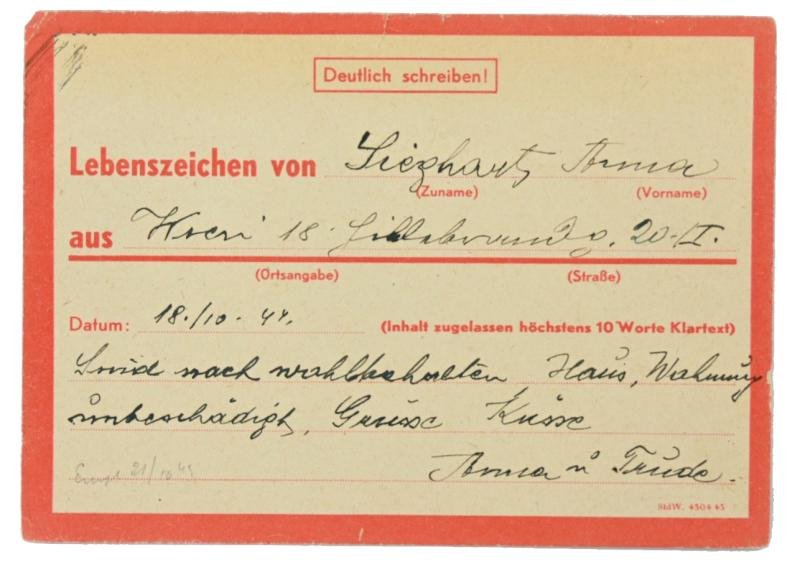 Deutlich schreiben!
Lebenszeichen von Sieghart Anna
(Zuname) (Vorname)
aus Wien 18. 20-II.
(Ortsangabe) (Straße)
Datum: 18./10. 44. (Inhalt zugelassen höchstens 10 Worte Klartext)
Sind noch wohlbehalten Haus, Wohnung
unbeschädigt, Grüsse Küsse
21/10 44 Anna u Trude.
StdW. 4504 45